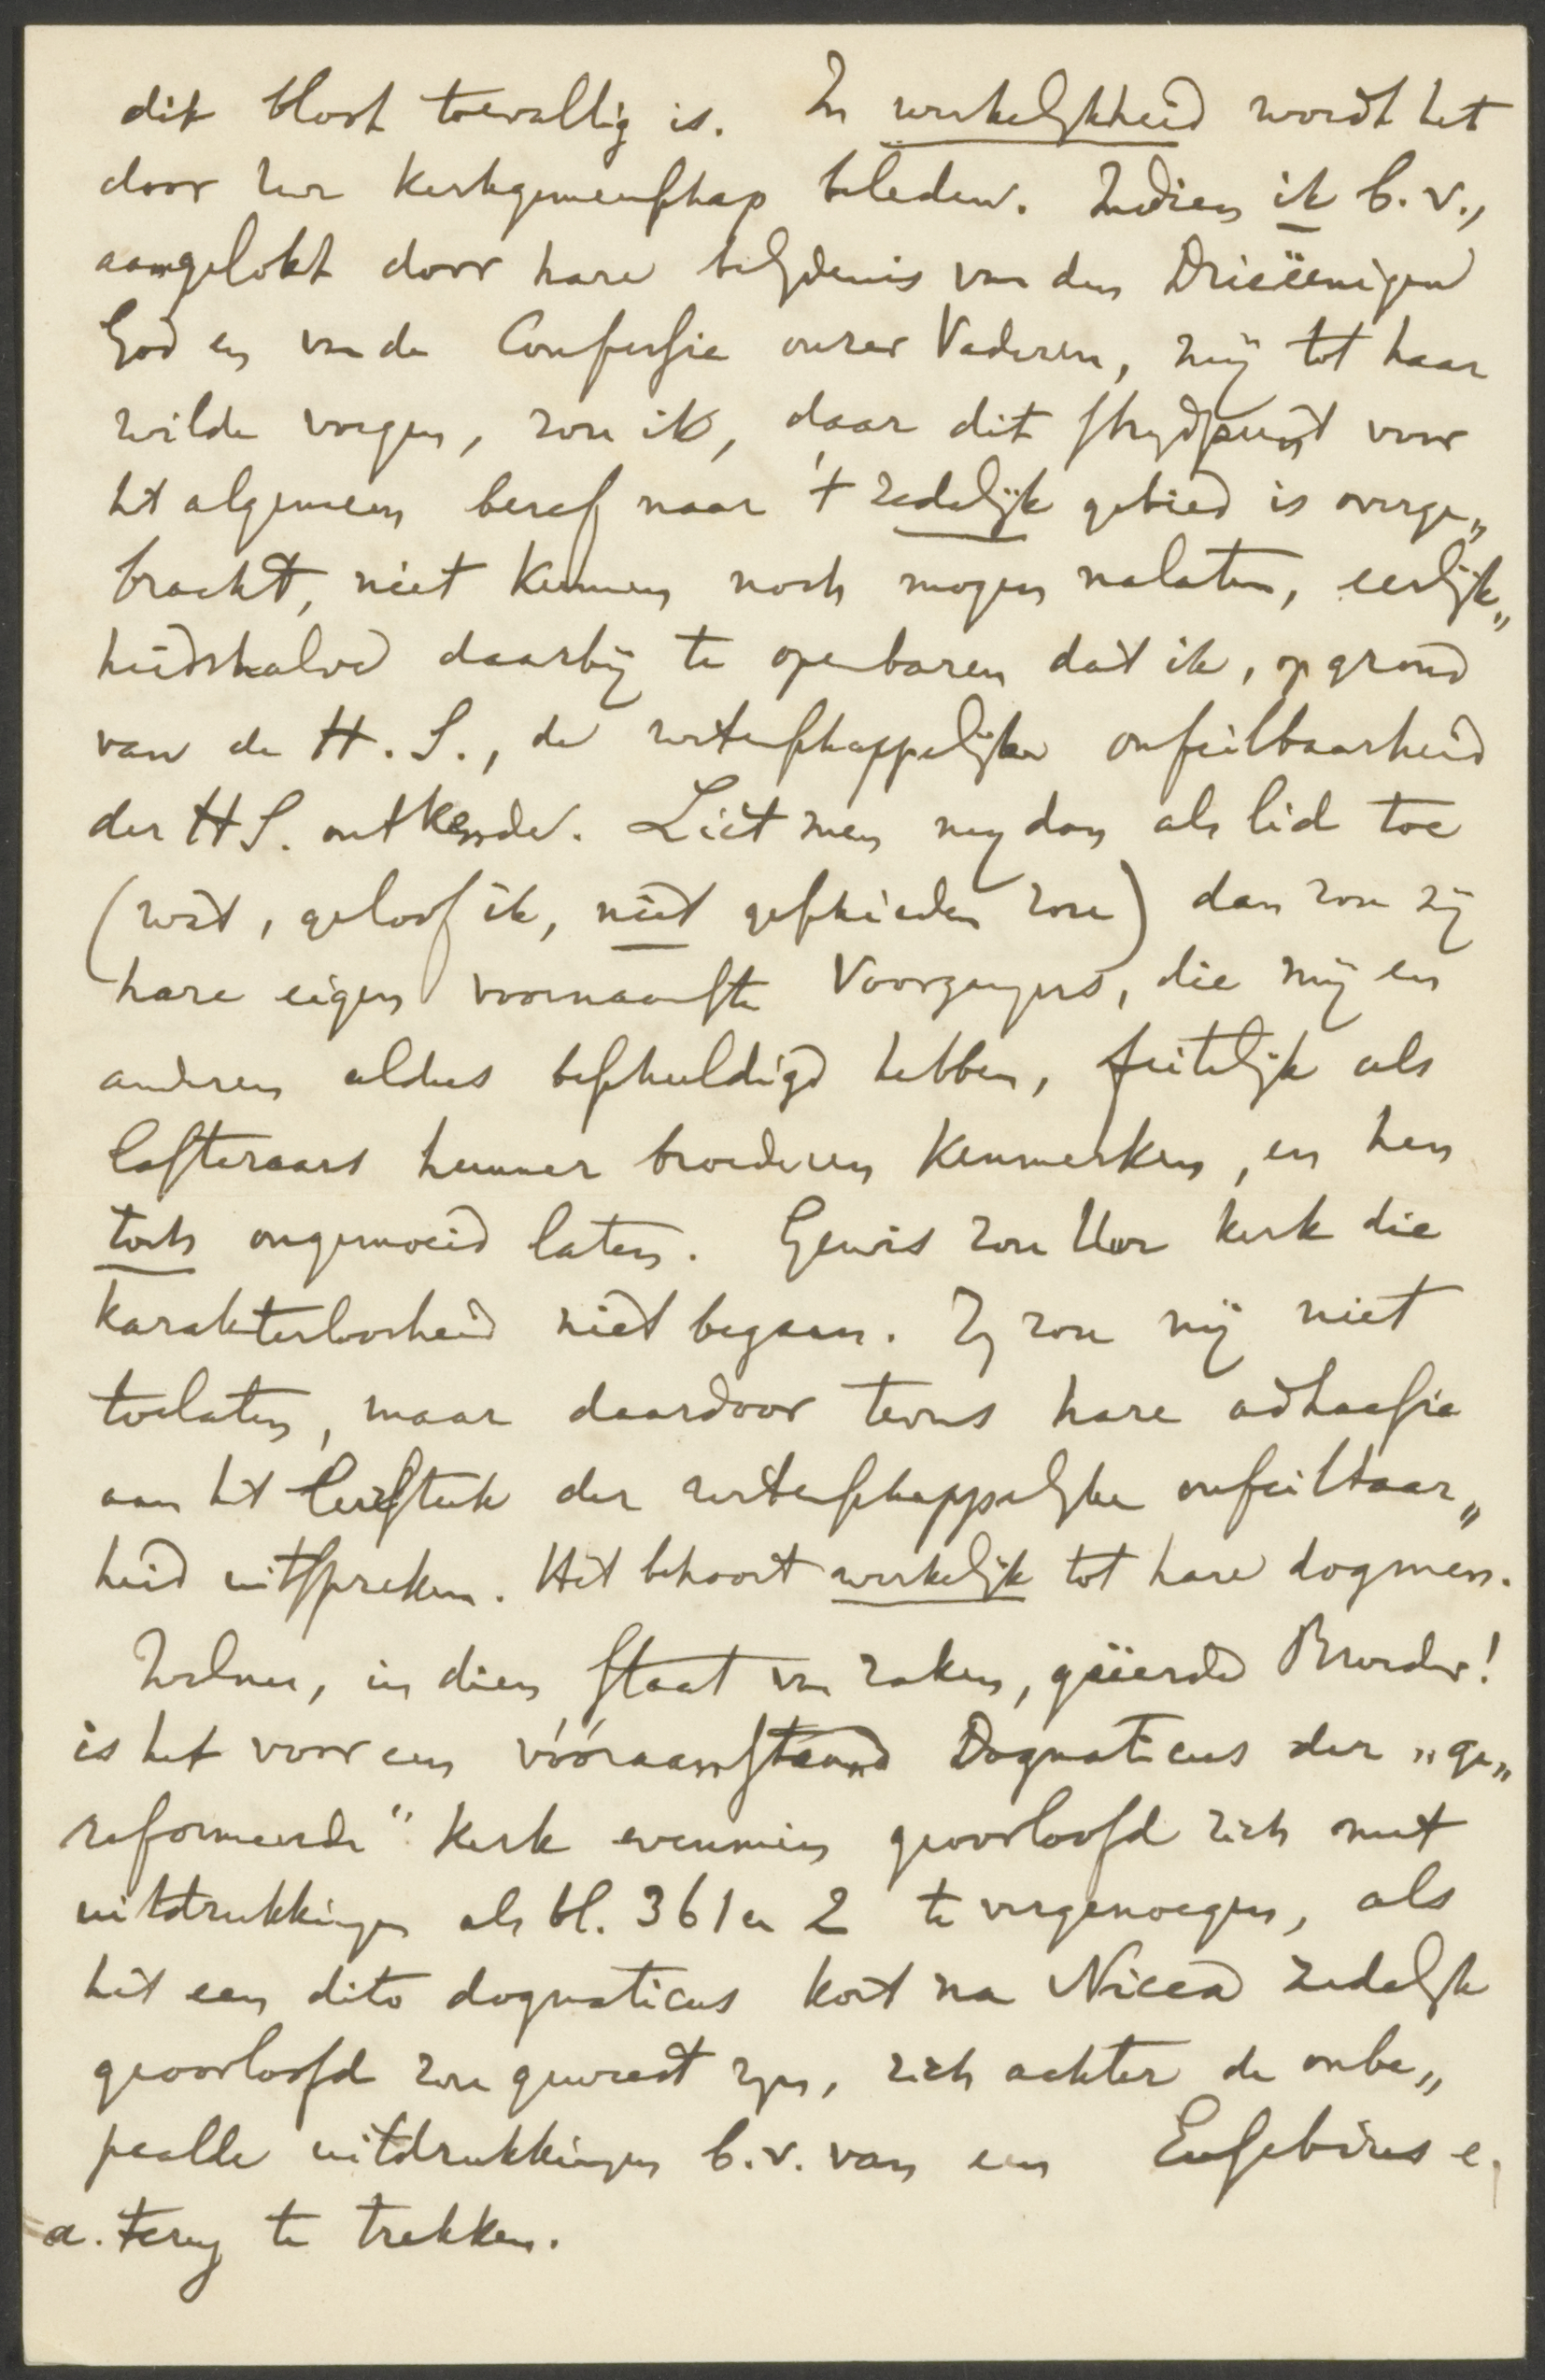 dit bloot toevallig is. In werkelijkheid wordt het
door Uw Kerkgemeenschap beleden. Indien ik b.v.,
aangelokt door hare belijdenis van den Drieëenigen
God en van de Confessie onzer Vaderen, mij tot haar
wilde voegen, zou ik, daar dit strijdpunt voor
het algemeen besef naar 't zedelijk gebied is overge„
bracht, niet kunnen noch mogen nalaten, eerlijk„
heidshalve daarbij te openbaren dat ik, op grond
van de H. S., de wetenschappelijke onfeilbaarheid
der H S. ontkende. Liet men mij dan als lid toe
(wat, geloof ik, niet geschieden zou) dan zou zij
hare eigen voornaamste Voorgangers, die mij en
anderen aldus beschuldigd hebben, feitelijk als
lasteraars hunner broederen Kenmerken, en hen
toch ongemoeid laten. Gewis zou Uwe kerk die
karakterloosheid niet begaan. Zij zou mij niet
toelaten, maar daardoor tevens hare adhaesie
aan het leerstuk der wetenschappelijke onfeilbaar„
heid uitspreken. Het behoort werkelijk tot hare dogmen.
Welnu, in dien staat van zaken, geëerde Broeder!
is het voor een vóóraanstaand Dogmaticus der „ge„
reformeerde" Kerk evenmin geoorloofd zich met
uitdrukkingen als bl. 361 en 2 te vergenoegen, als
het een dito dogmaticus kort na Nicea zedelijk
geoorloofd zou geweest zijn, zich achter de onbe„
paalde uitdrukkingen b.v. van een Eusebius e.
a. terug te trekken.